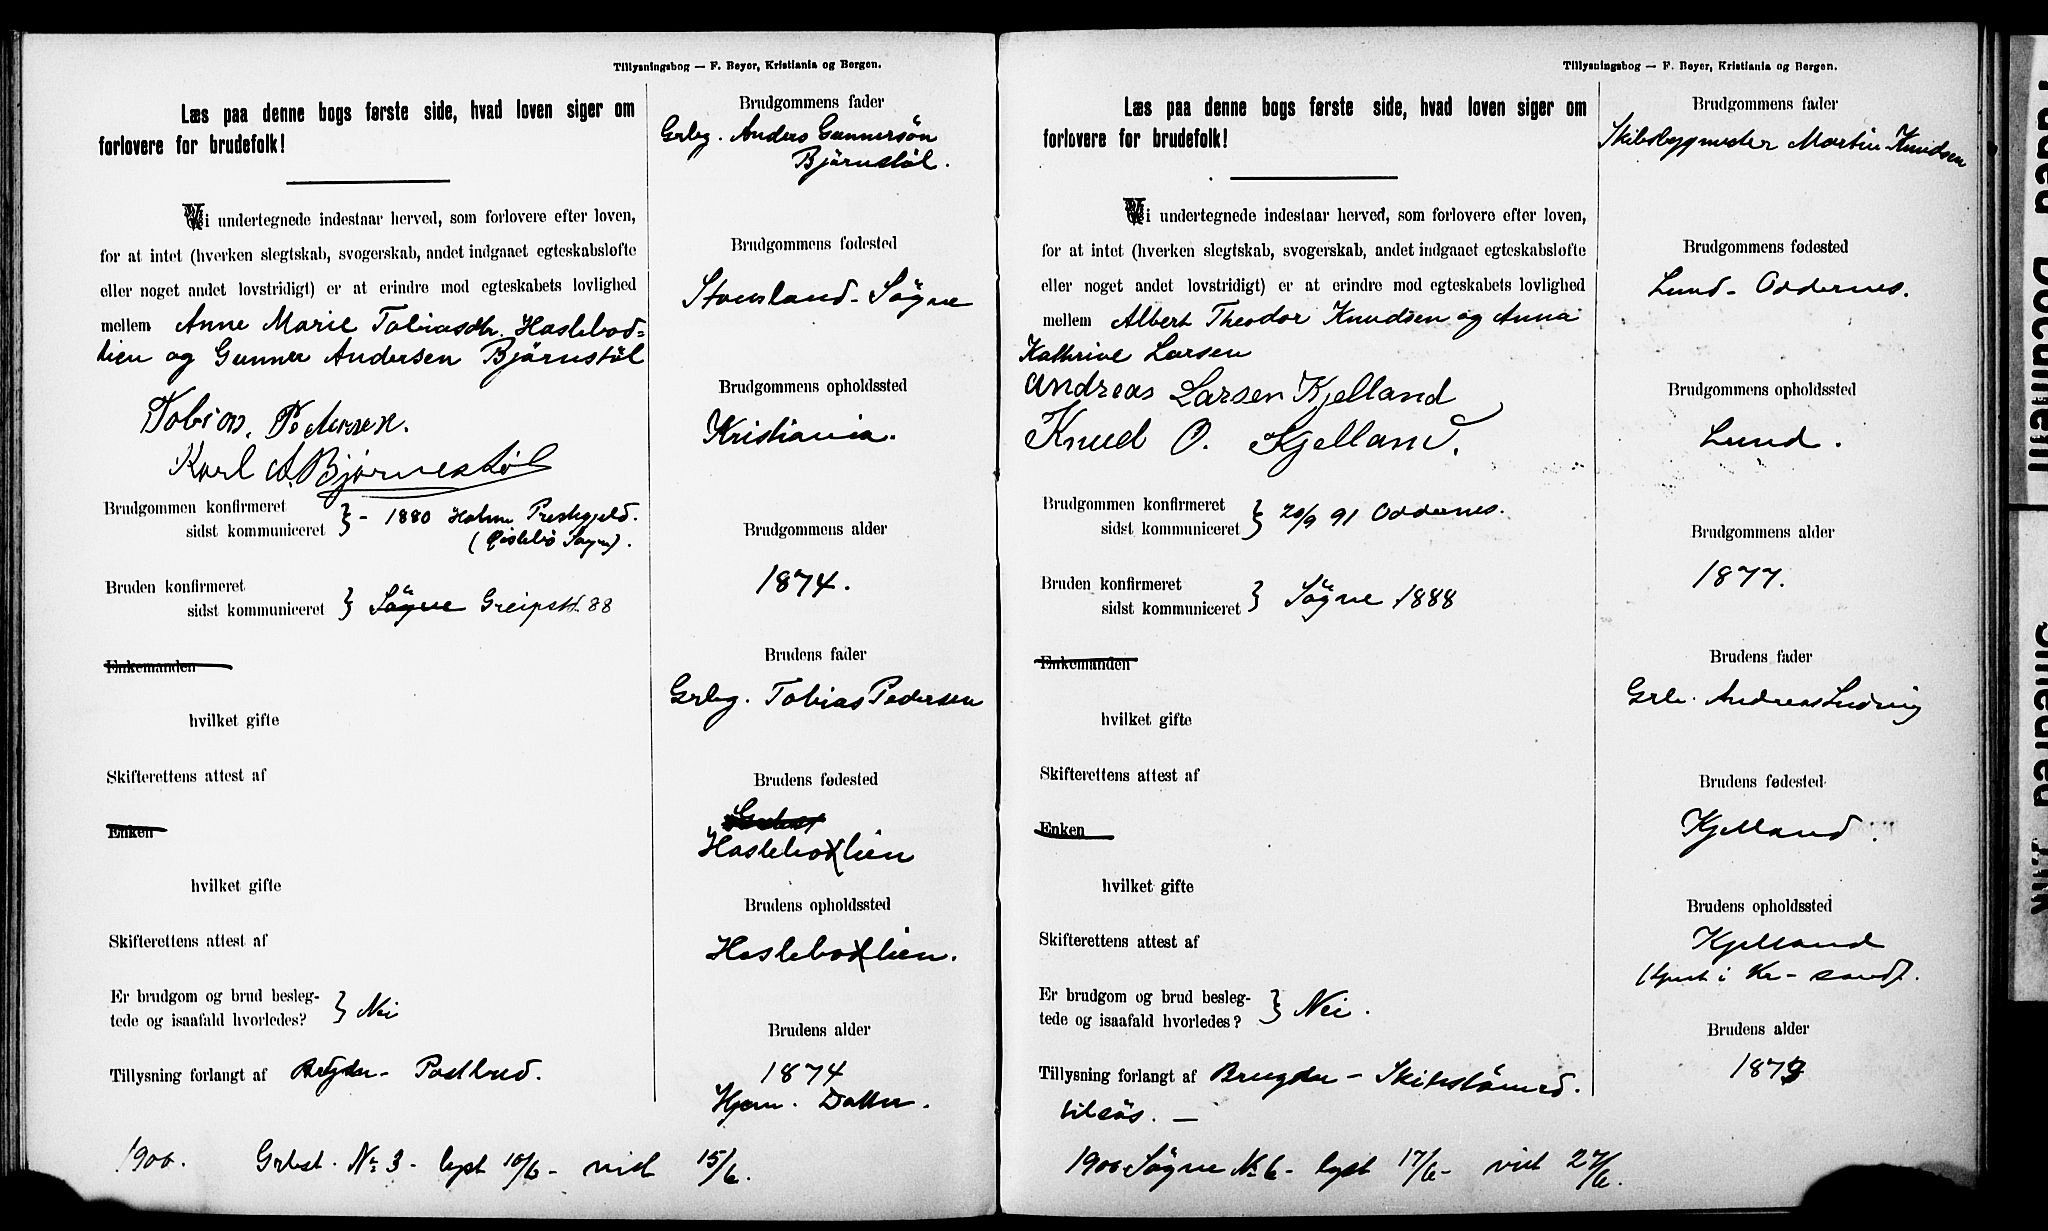 Tillysningsbog — F. Beyer, Kristiania og Bergen.
Læs paa denne bogs første side, hvad loven siger om
forlovere for brudefolk!
Vi undertegnede indestaar herved, som forlovere efter loven,
for at intet (hverken slegtskab, svogerskab, andet indgaaet egteskabsløfte
eller noget andet lovstridigt) er at erindre mod egteskabets lovlighed
mellem Anne Marie Tobiasdtr. Haslebod=
lien og Gunner Andersen Bjørnstøl
Tobias. Pedersen.
Karl A. Bjørnestøl
Brudgommen konfirmeret
sidst kommuniceret } - 1880 Holme Prestegjeld.
(Øislebø Sogn).
Bruden konfirmeret
sidst kommuniceret } Søgne Greipst. 88
Enkemanden
hvilket gifte
Skifterettens attest af
Enken
hvilket gifte
Skifterettens attest af
Er brudgom og brud besleg-
tede og isaafald hvorledes? } Nei
Tillysning forlangt af Brgden - Postbud.
Brudgommens fader
Grbg. Anders Gunnersøn
Bjørnstøl.
Brudgommens fødested
Stousland - Søgne
Brudgommens opholdssted
Kristiania.
Brudgommens alder
1874.
Brudens fader
Grbg. Tobias Pedersen
Brudens fødested
Haslebodlien
Brudens opholdssted
Haslebodlien.
Brudens alder
1874
Hjem. Datter.
1900. Grbst. No 3 - lyst 10/6 - viet 15/6.
Tillysningsbog — F. Beyer, Kristiania og Bergen.
Læs paa denne bogs første side, hvad loven siger om
forlovere for brudefolk!
Vi undertegnede indestaar herved, som forlovere efter loven,
for at intet (hverken slegtskab, svogerskab, andet indgaaet egteskabsløfte
eller noget andet lovstridigt) er at erindre mod egteskabets lovlighed
mellem Albert Theodor Knudsen og Anna
Kathrine Larsen
Andreas Larsen Kjelland
Knud O. Kjelland.
Brudgommen konfirmeret
sidst kommuniceret } 20/9 91 Oddernes.
Bruden konfirmeret
sidst kommuniceret } Søgne 1888
Enkemanden
hvilket gifte
Skifterettens attest af
Enken
hvilket gifte
Skifterettens attest af
Er brudgom og brud besleg-
tede og isaafald hvorledes? } Nei.
Tillysning forlangt af Brugden - Skibstømrd.
tilsøs. —
Brudgommens fader
Skibsbygmester Martin Knudsen
Brudgommens fødested
Lund - Oddernes.
Brudgommens opholdssted
Lund.
Brudgommens alder
1877.
Brudens fader
Grb. Andreas Ludvig
Brudens fødested
Kjelland.
Brudens opholdssted
Kjelland
(tjent i Kr-sand).
Brudens alder
1873
1900 Søgne No 6 - lyst 17/6 - viet 27/6.